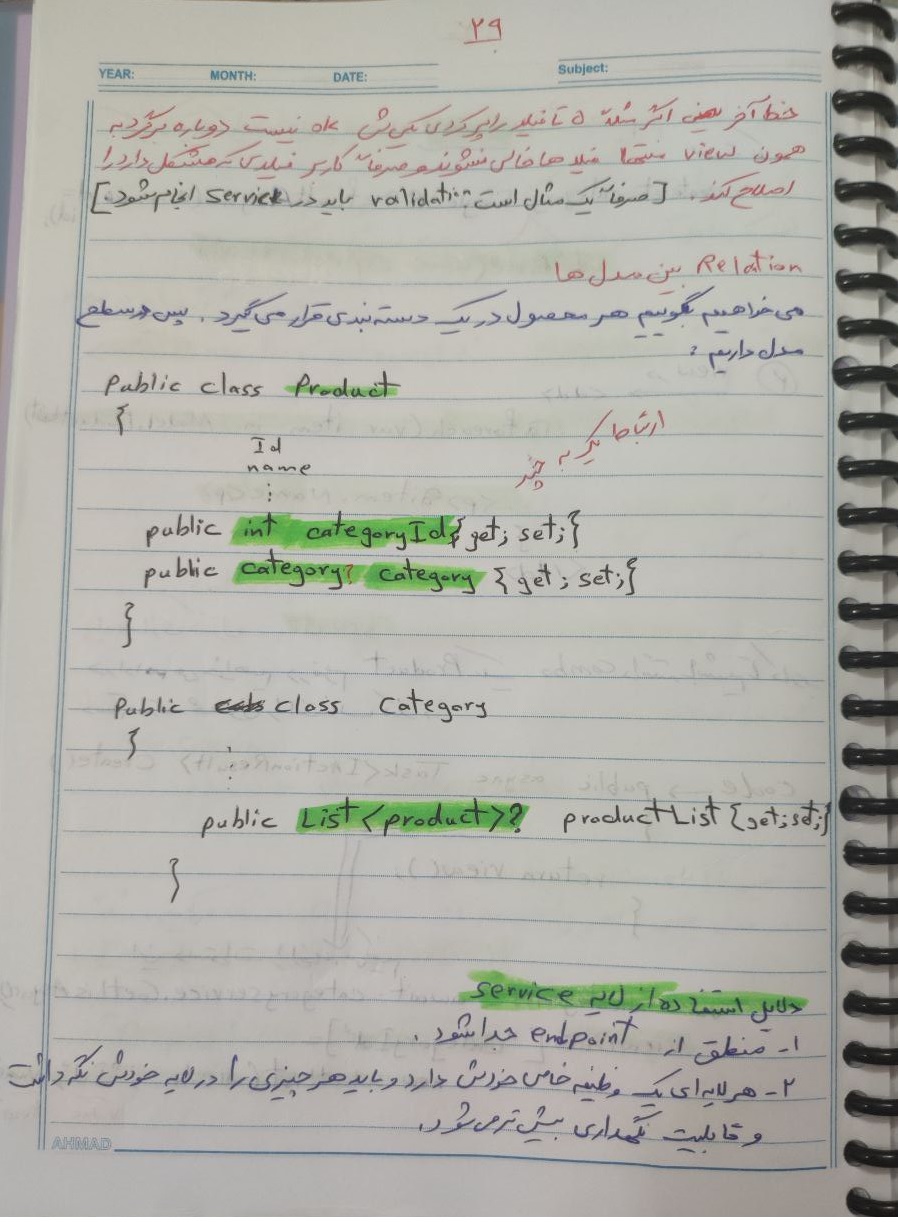 ۲۹
YEAR: MONTH: DATE: Subject:
خط آخر یعنی اگر مثلاً ۵ تا فیلد را پر کردی یکیش ok نیست دوباره برگرد به
همون view منتها فیلدها خالی نشوند و صرفاً کاربر فیلدی که مشکل دارد را
اصلاح کند. [صرفاً یک مثال است، validation باید در service انجام شود]
Relation بین مدل ها
می خواهیم بگوییم هر محصول در یک دسته بندی قرار می گیرد. پس در سطح
مدل داریم:
Public class Product
{
ارتباط یک به چند
Id
name
⋮
public int categoryId {get; set;}
public category? category {get; set;}
}
Public class Category
{
⋮
public List<product>? productList {get; set;}
}
دلایل استفاده از لایه service
۱- منطق از endpoint جدا شود.
۲- هر لایه ای یک وظیفه خاص خودش دارد و باید هر چیزی را در لایه خودش نگه داشت
و قابلیت نگهداری بیش تر می شود.
AHMAD